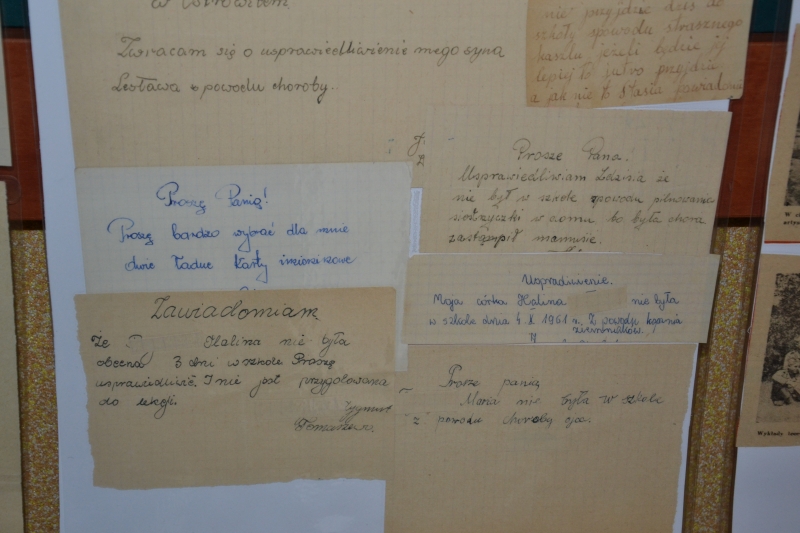 w Ostrowitem
Zwracam się o usprawiedliwienie mego syna
Lesława z powodu choroby.
nie przyjdzie dziś do
szkoły spowodu strasznego
kaszlu jeżeli będzie jej
lepiej to jutro przyjdzie
a jak nie to Stasia powiadomi
Prosze Pana!
Usprawiedliwiam Zdzisia że
nie był w szkole spowodu pilnowania
siostrzyczki w domu bo była chora
zastąmpił mamusie.
Proszę Panią!
Proszę bardzo wybrać dla mnie
dwie ładne karty imieninowe
Uspradiwienie.
Moja córka Halina nie była
w szkole dnia 4. X 1961 r. Z powodu kopania
ziemniaków.
Zawiadomiam
że Halina nie była
obecna 3 dni w szkole Proszę
usprawiedliwić. I nie jest przygotowana
do lekcji.
Zygmunt
Prosze panią
Maria nie była w szkole
z powodu choroby ojca.